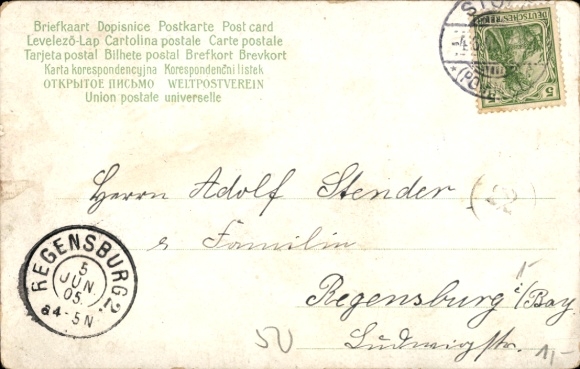 Briefkaart Dopisnice Postkarte Post card
Levelező-Lap Cartolina postale Carte postale
Tarjeta postal Bilhete postal Brefkort Brevkort
Karta korespondencyjna Korespondenční listek
ОТКРЫТОЕ ПИСЬМО WELTPOSTVEREIN
Union postale universelle
DEUTSCHES REICH
5
5
Herrn Adolf Stender
(22)
& Familie
Regensburg i/Bay.
Ludwigstr.
REGENSBURG 2
5
JUN.
05.
4-5N
50
1-
11,-